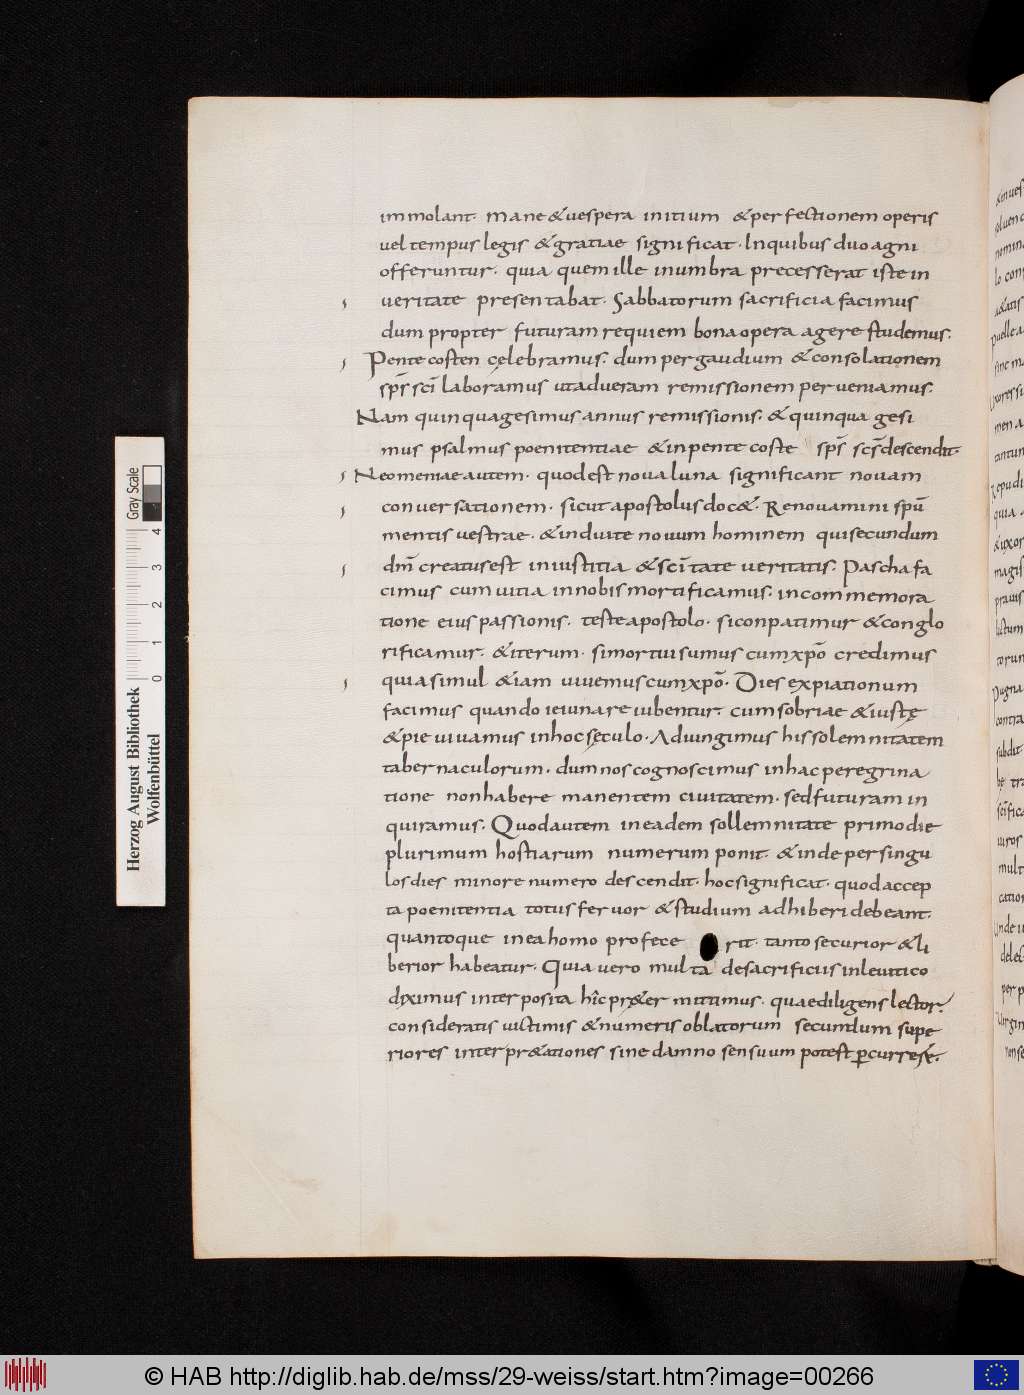 immolant. Mane & vespera initium & perfectionem operis
vel tempus legis & gratiae significat. In quibus duo agni
offeruntur. quia quem ille in umbra precesserat iste in
veritate presentabat. Sabbatorum sacrificia facimus
dum propter futuram requiem bona opera agere studemus.
Pentecosten celebramus. dum per gaudium & consolationem
sp̄s sc̄i laboramus ut ad veram remissionem perveniamus.
Nam quinquagesimus annus remissionis. & quinquagesi
mus psalmus poenitentiae & in pentecoste sp̄s sc̄s descendit.
Neomeniae autem. quod est nova luna significant novam
conversationem. sicut apostolus doc&. Renovamini spū
mentis vestrae. & induite novum hominem qui secundum
dm̄ creatus est in iustitia & sc̄itate veritatis. Pascha fa
cimus cum vitia in nobis mortificamus. in commemora
tione eius passionis. teste apostolo. si conpatimur & conglo
rificamur. & iterum. si mortui sumus cum xp̄o credimus
quia simul & iam vivemus cum xp̄o. Dies expiationum
facimus quando ieiunare iubentur. cum sobriae & iustę
& pie vivamus in hoc sęculo. Adiungimus his solemnitatem
tabernaculorum. dum nos cognoscimus in hac peregrina
tione non habere manentem civitatem. sed futuram in
quiramus. Quod autem in eadem sollemnitate primo die
plurimum hostiarum numerum ponit. & inde per singu
los dies minore numero descendit. hoc significat. quod accep
ta poenitentia totus fervor & studium adhiberi debeant.
quantoque in ea homo profece rit. tanto securior & li
berior habeatur. Quia vero multa de sacrificiis in levitico
diximus interposita hic pr&er mittimus. quae diligens lector.
consideratis victimis & numeris oblatorum secundum supe
riores interpr&ationes sine damno sensuum potest ꝑcurrere.
Herzog August Bibliothek
Wolfenbüttel
0 1 2 3 4
Gray Scale
© HAB http://diglib.hab.de/mss/29-weiss/start.htm?image=00266